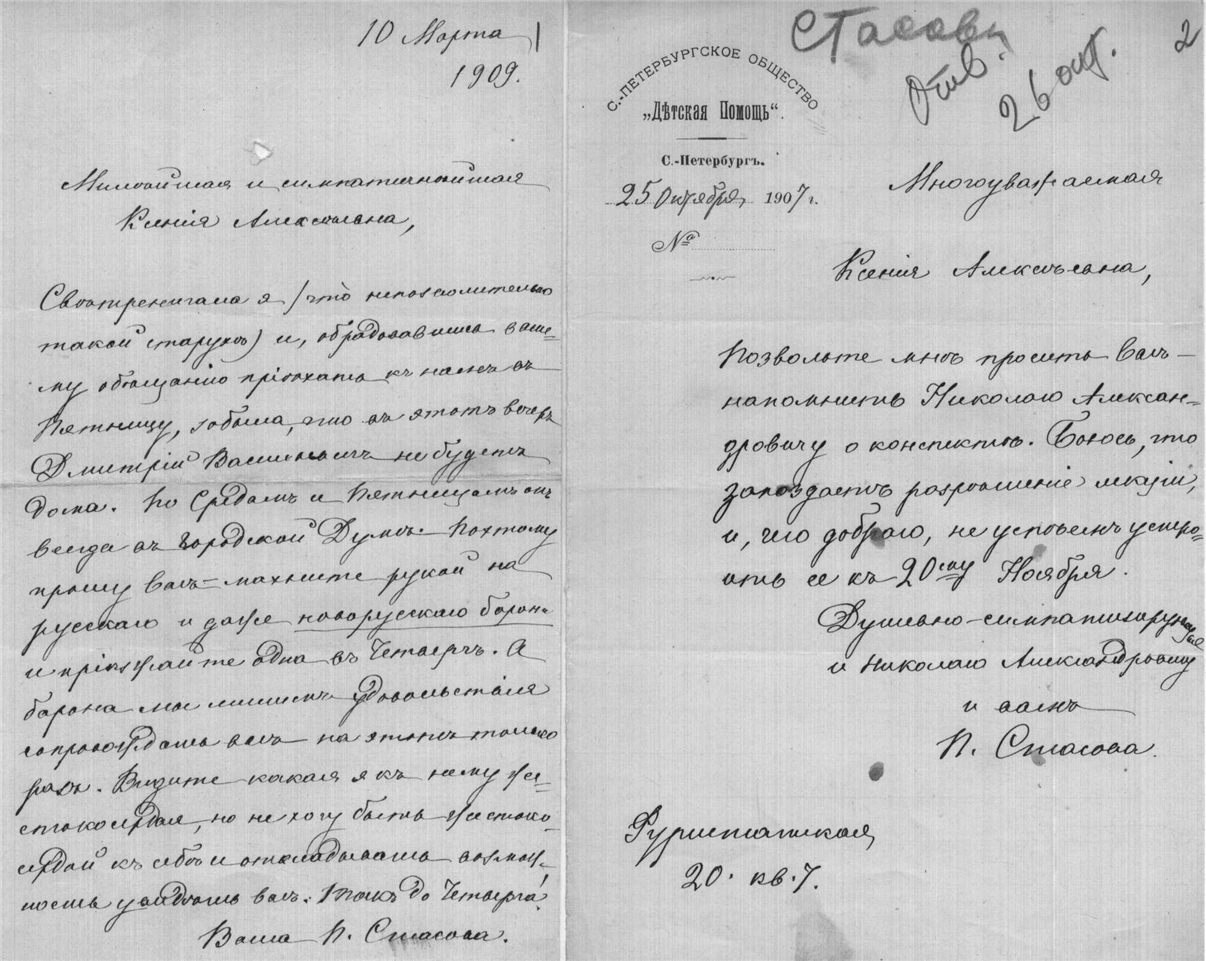 10 Марта
1909.
Милѣйшая и симпатичнѣйшая
Ксенія Алексѣевна,
я (что непозволительно
такой старухѣ) и, обрадовавшись ваше-
му обѣщанію пріѣхать къ намъ въ
Пятницу, забыла, что въ этотъ вечеръ
Дмитрій Васильевичъ не будетъ
дома. По Средамъ и Пятницамъ онъ
всегда въ Городской Думѣ. Поэтому
прошу васъ – махните рукой на
русскаго и даже новорусскаго барон-
и пріѣзжайте одна въ Четвергъ. А
барона мы лишимъ удовольствія
сопровождать васъ на этотъ только
разъ. Видите какая я къ нему же-
стокосердая, но не хочу быть жестоко-
сердой къ себѣ и откладывать возмож-
ность увидѣть васъ. Такъ до Четверга!
Ваша П. Стасова.
1
Стасова
Отв.
26 окт.
2
С.-ПЕТЕРБУРГСКОЕ ОБЩЕСТВО
„Дѣтская Помощь“.
С.-Петербургъ.
25 Октября 1907 г.
№
Многоуважаемая
Ксенія Алексѣевна,
Позвольте мнѣ просить васъ –
напомнить Николаю Алексан-
дровичу о конспектѣ. Боюсь, что
запоздаетъ разрѣшеніе лекціи,
и, чего добраго, не успѣемъ устро-
ить ее къ 20ому Ноября.
Душевно-симпатизирующая
и Николаю Александровичу
и вамъ
П. Стасова.
Фурштатская
20. кв. 7.